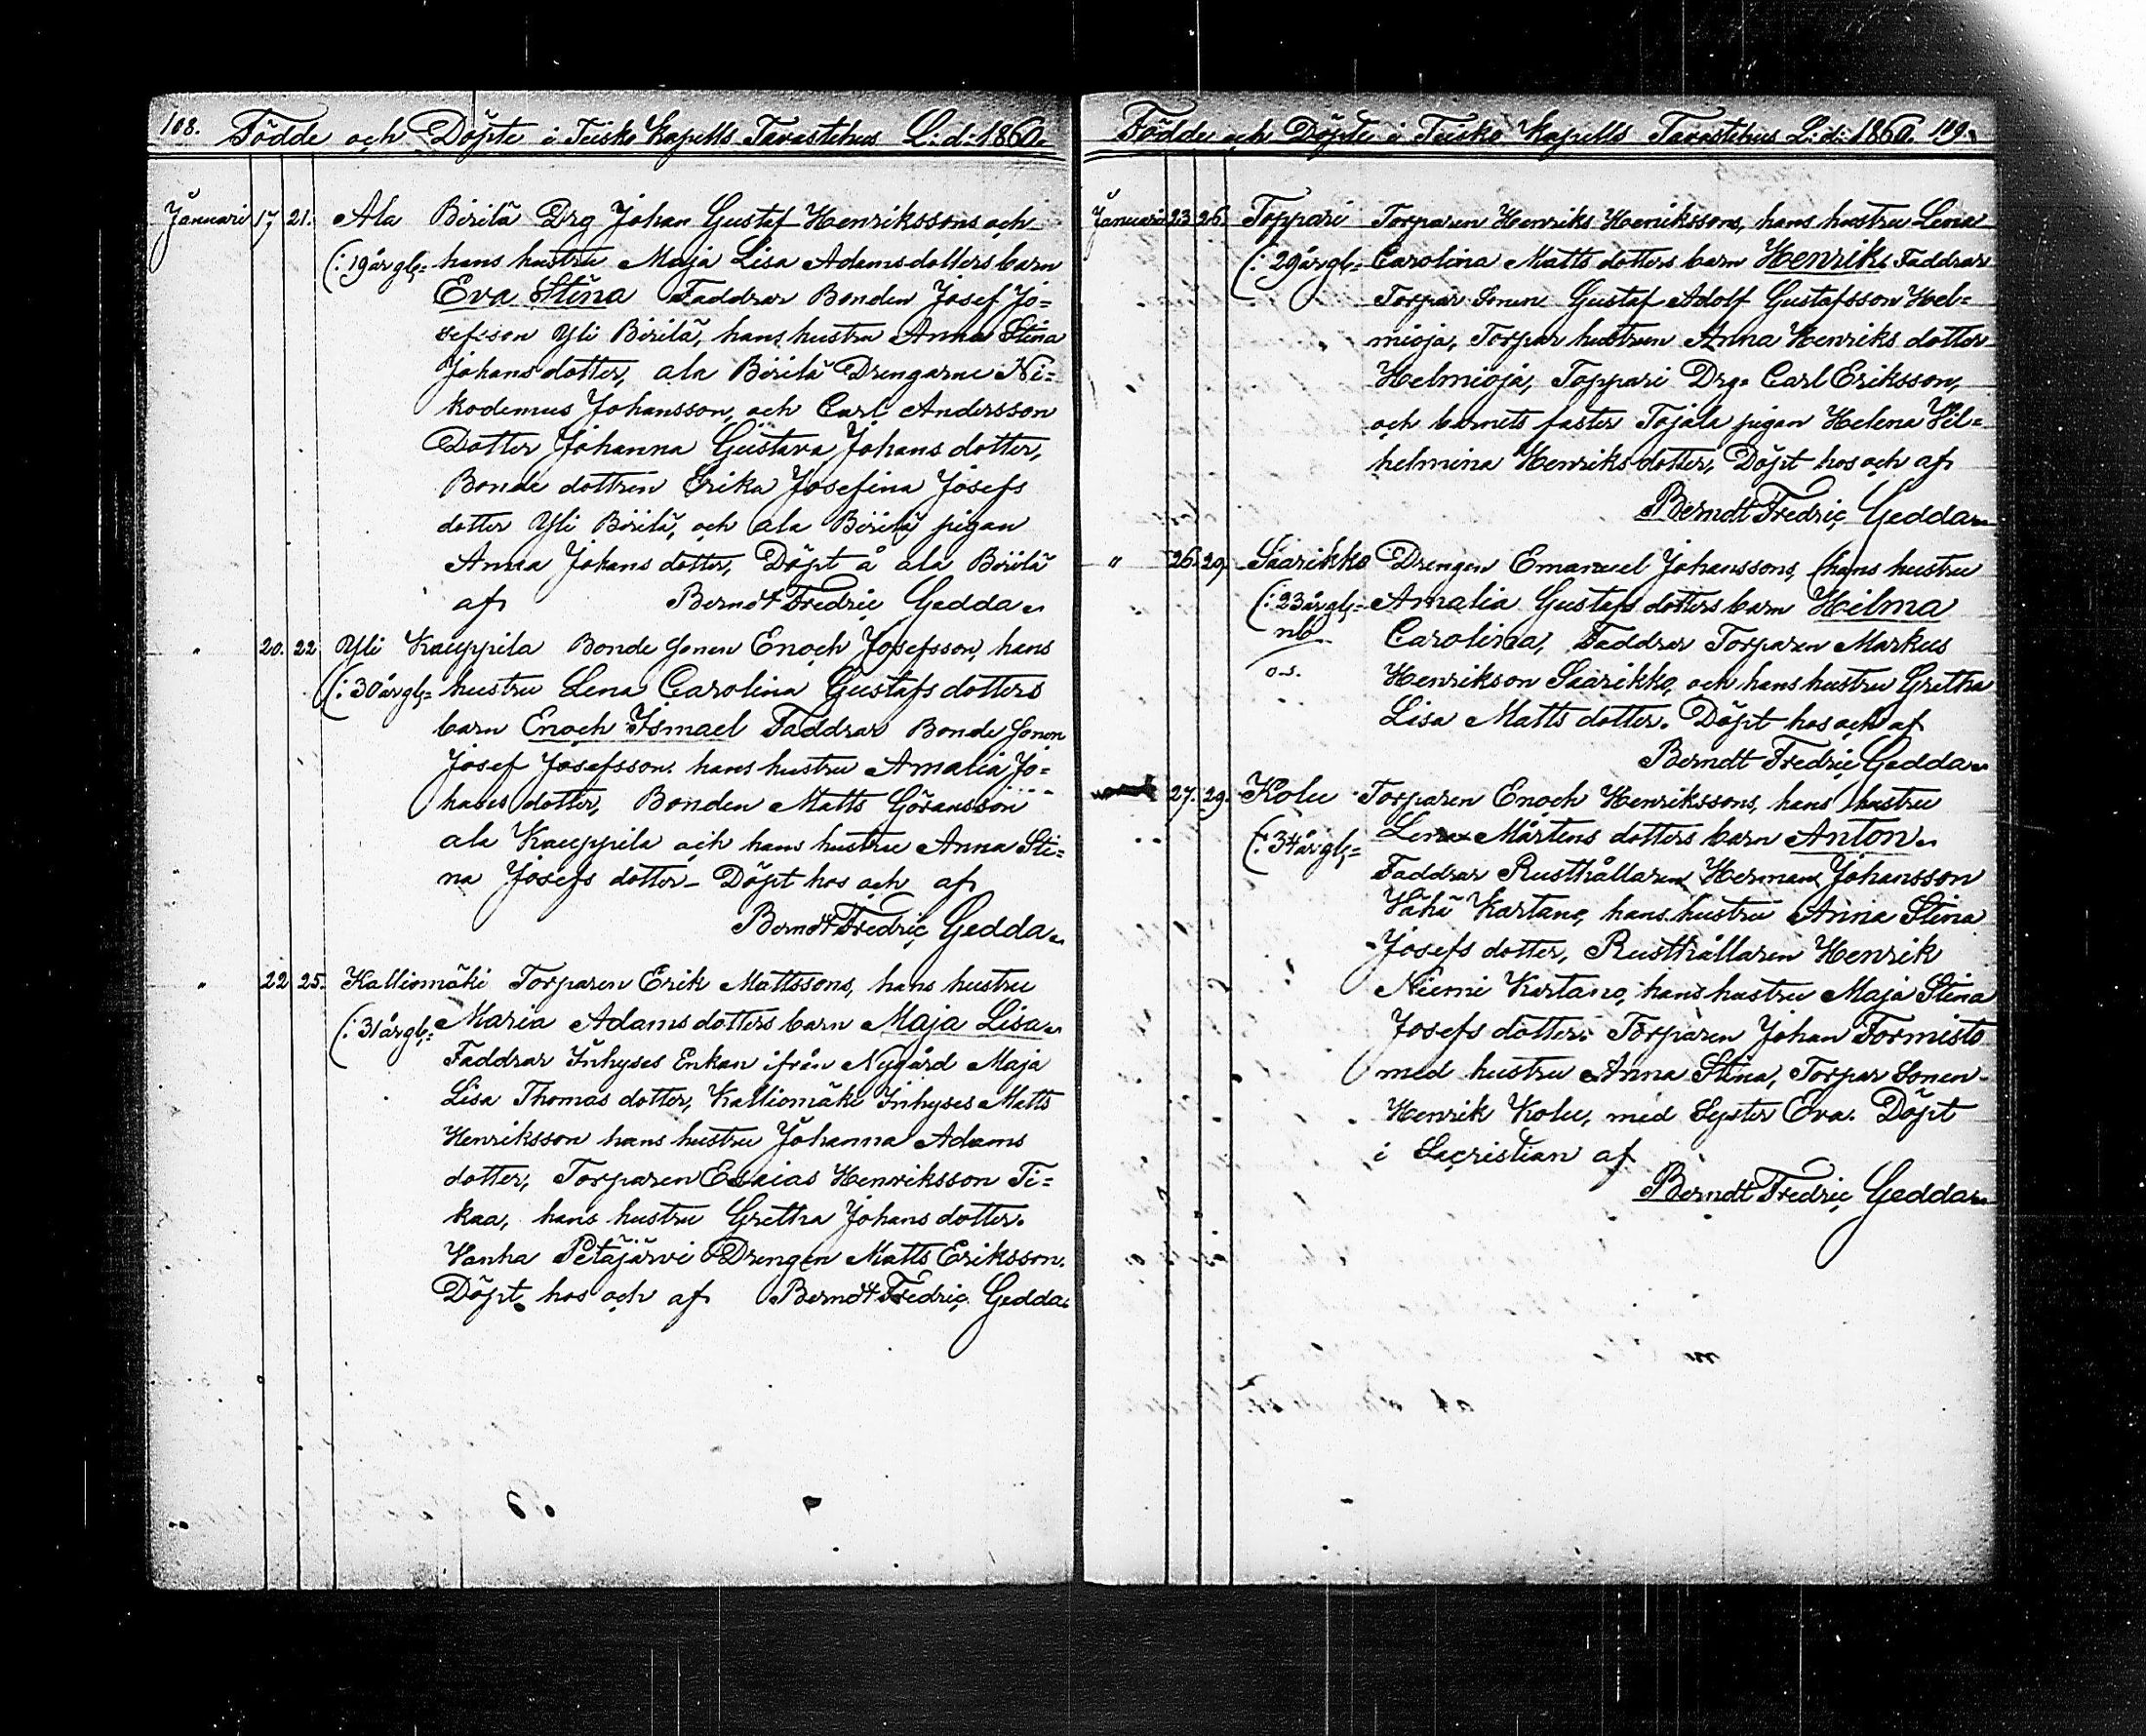 108. Födde och Döpte i Teisko Kapells Tavastehus L:d: 1860.
Januari 17 21. Ala Birilä Drg Johan Gustaf Henrikssons och
(: 19 år gl= hans hustru Maja Lisa Adamsdotters barn
Eva Stina Faddrar Bonden Josef Jo=
sefsson Yli Birilä, hans hustru Anna Stina
Johans dotter, ala Birilä Drengarne Ni=
kodemus Johansson, och Carl Andersson
Dotter Johanna Gustava Johans dotter,
Bonde dottren Erika Josefina Josefs
dotter Yli Birilä, och ala Birilä pigan
Anna Johans dotter, Döpt å ala Birilä
af Berndt Fredric Gedda.
" 20. 22 Yli Kauppila Bonde Sonen Enoch Josefsson, hans
(: 30 år gl= hustru Lena Carolina Gustafs dotters
barn Enoch Ismael Faddrar Bonde Sonen
Josef Josefsson. hans hustru Amalia Jo=
hans dotter, Bonden Matts Göransson
ala Kauppila och hans hustru Anna Sti=
na Josefs dotter– Döpt hos och af
Berndt Fredric Gedda.
" 22 25. Kalliomäki Torparen Erik Mattssons, hans hustru
(: 31 år gl= Maria Adams dotters barn Maja Lisa.
Faddrar Inhyses Enkan ifrån Nygård Maja
Lisa Thomas dotter, Kalliomäki Inhyses Matts
Henriksson hans hustru Johanna Adams
dotter, Torparen Esaias Henriksson Ti=
kaa, hans hustru Gretha Johans dotter.
Vanha Petäjärvi Drengen Matts Eriksson.
Döpt hos och af Berndt Fredric Gedda.
Födde och Döpte i Teisko Kapells Tavastehus L:d: 1860. 109.
Januari 23 26. Toppari Torparen Henriks Henrikssons, hans hustru Lena
(: 29 år gl= Carolina Matts dotters barn Henrik. Faddrar
Torpar Sonen Gustaf Adolf Gustafsson Hel=
mioja, Torpar hustrun Anna Henriks dotter
Helmioja, Toppari Drg. Carl Eriksson,
och barnets faster Tojala pigan Helena Vil=
helmina Henriks dotter, Döpt hos och af
Berndt Fredric Gedda.
" 26. 29. Saarikko Drengen Emanuel Johanssons, hans hustru
(: 23 år gl= Amalia Gustafs dotters barn Hilma
nb Carolina, Faddrar Torparen Markus
o.s. Henrikson Saarikko, och hans hustru Gretha
Lisa Matts dotter. Döpt hos och af
Berndt Fredric Gedda.
27. 29. Kolu Torparen Enoch Henrikssons, hans hustru
(: 34 år gl= Lena Mårtens dotters barn Anton.
Faddrar Rusthållaren Herman Johansson
Vähä Kartano, hans hustru Anna Stina
Josefs dotter, Rusthållaren Henrik
Niemi Kartano, hans hustru Maja Stina
Josefs dotter. Torparen Johan Formisto
med hustru Anna Stina, Torpar Sonen
Henrik Kolu, med Syster Eva. Döpt
i Sacristian af
Berndt Fredric Gedda.